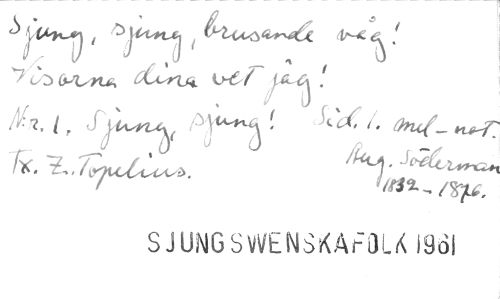 Sjung, sjung, brusande våg!
Visorna dina vet jag!
N:r. 1. Sjung, sjung! Sid. 1. mel-not.
Tx. Z. Topelius. Aug. Söderman
1832-1876.
SJUNGSWENSKAFOLK 1961